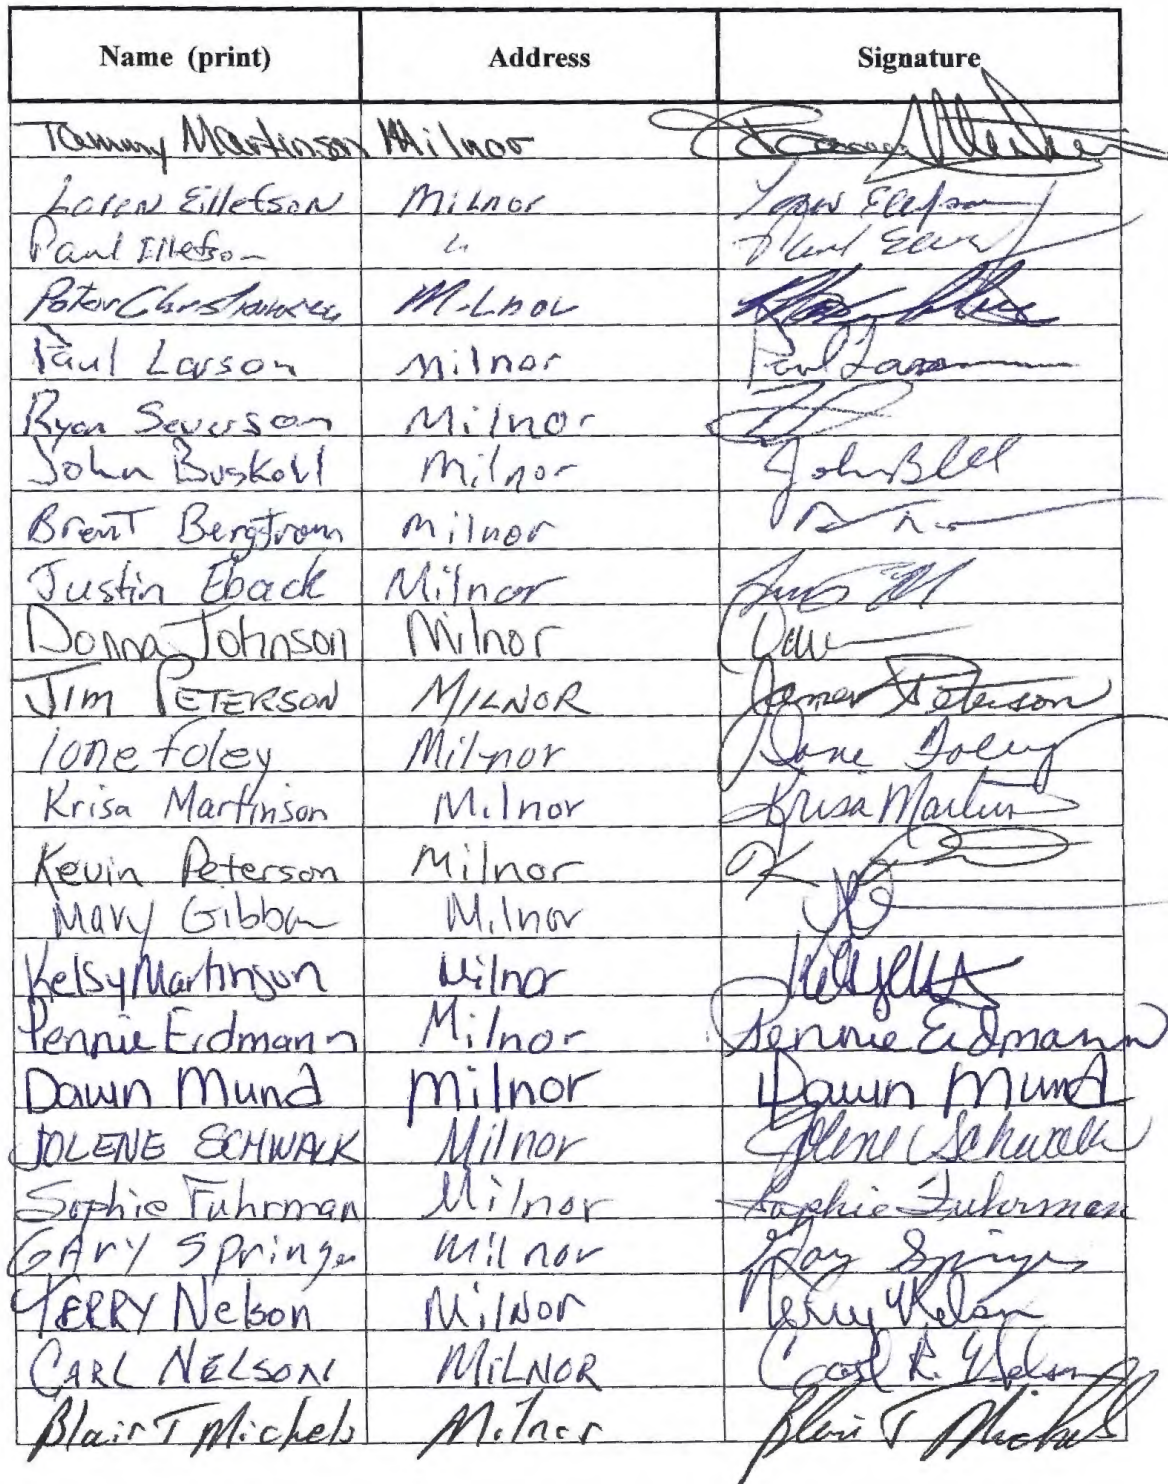 Name (print) Address Signature
Tammy Martinson Milnor
Loren Eillefson Milnor
Paul Illefson "
Peter Milnor
Paul Larson Milnor Paul Larson
Ryan Severson Milnor
John Buskohl Milnor John
Brent Bergstrom Milnor
Justin Eback Milnor
Donna Johnson Milnor
JIM PETERSON MILNOR James Peterson
Ione Foley Milnor Ione Foley
Krisa Martinson Milnor Krisa Martin
Kevin Peterson Milnor K
Mary Milnor
Kelsy Martinson Milnor
Pennie Erdmann Milnor Pennie Erdmann
Dawn Mund Milnor Dawn Mund
JOLENE SCHWALK Milnor Jolene Schwalk
Sophie Fuhrman Milnor Sophie Fuhrman
GAry Springer Milnor Gary Springer
TERRY Nelson Milnor Terry Nelson
CARL NELSON MILNOR Carl R. Nelson
Blair T Michels Milnor Blair T Michels